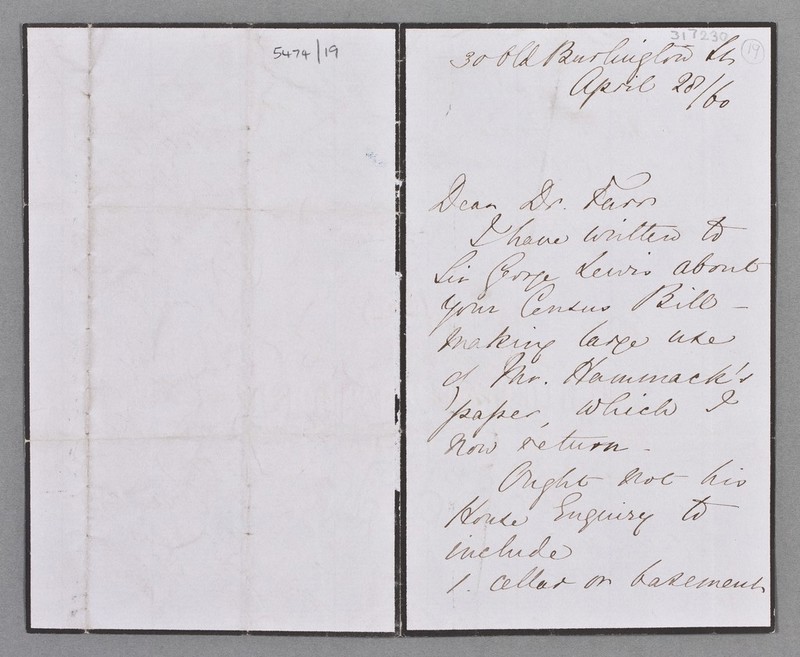 5474/19
317230
19
30 Old Burlington St
April 28/60
Dear Dr. Farr
I have written to
Sir George Lewis about
your Census Bill -
making large use
of Mr. Hammack's
paper, which I
now return -
Ought not his
House Enquiry to
include
1. cellar or basement